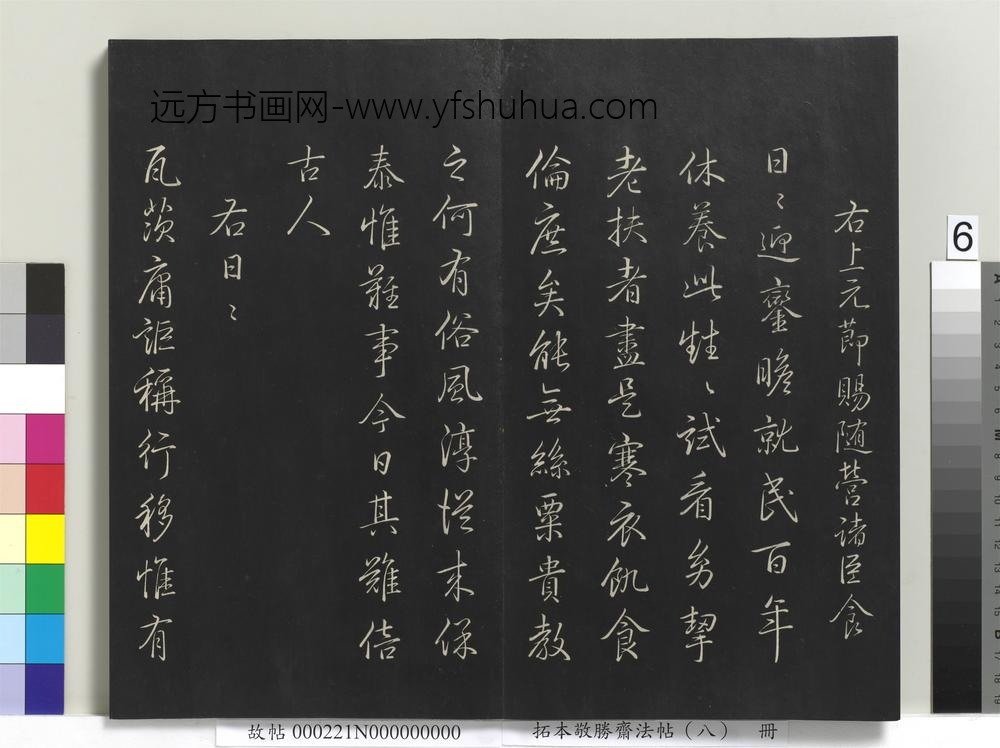 远方书画网-www.yfshuhua.com
右上元節賜随營諸臣食
日〻迎鑾瞻就民百年
休養此甡〻試看幼挈
老扶者盡是寒衣飢食
倫庶矣能無絲粟貴教
之何有俗風淳從来保
泰惟難事今日其難倍
古人
右日〻
瓦茨庸詎稱行移惟有
6
故帖 000221N000000000
拓本敬勝齋法帖（八） 冊